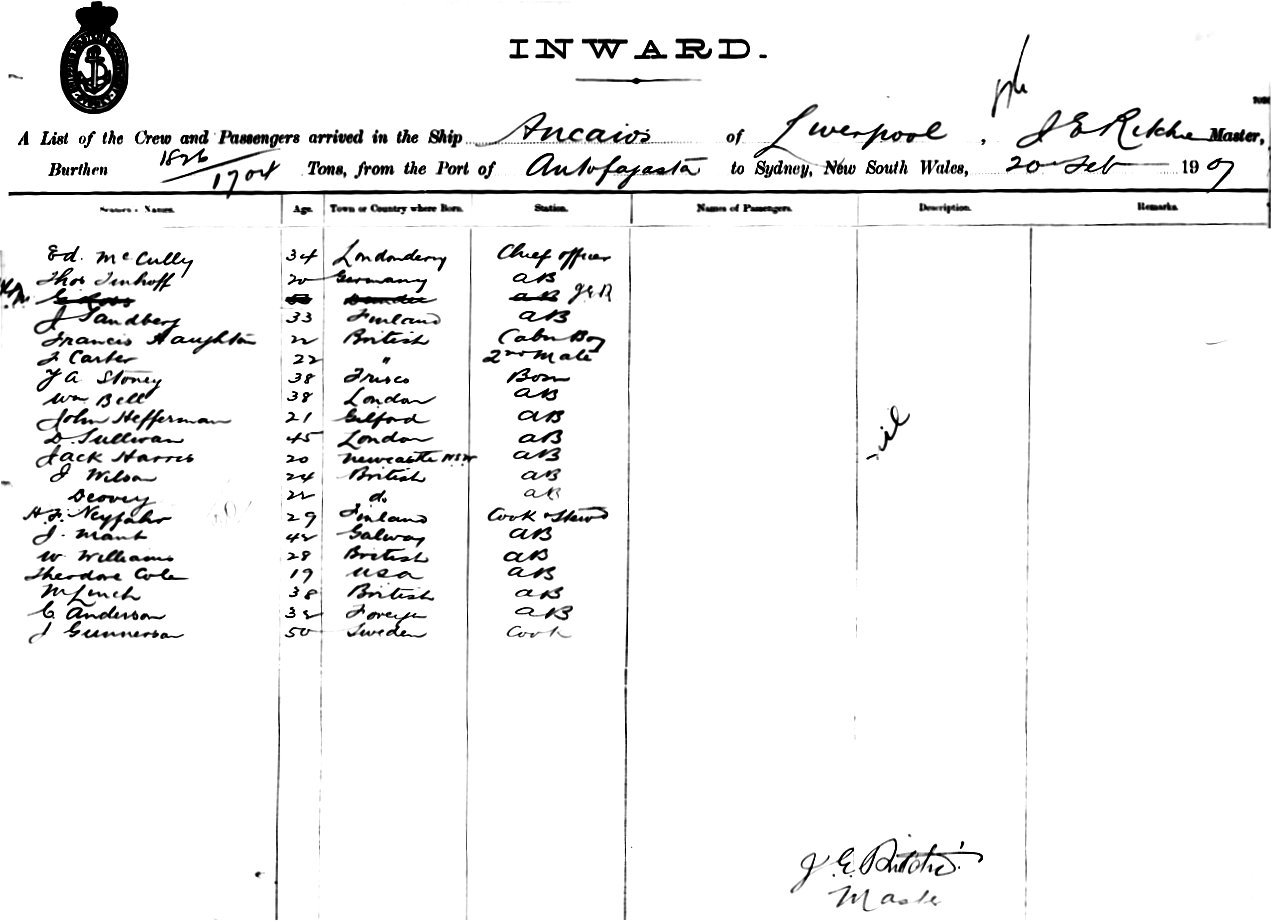 INWARD.
A List of the Crew and Passengers arrived in the Ship Ancaios of Liverpool, J E Ritchie Master,
Burthen 1826/1704 Tons, from the Port of Antofagasta to Sydney, New South Wales, 20 Feb 1907
Seamen's Names. Age. Town or Country where Born. Station. Names of Passengers. Description. Remarks.
Ed. McCully 34 Londonderry Chief officer
Thos Imhoff 20 Germany AB
Dundee AB J E R
J Sandberg 33 Finland AB
Francis Haughton 22 British Cabin Boy
F Carter 22 " 2nd Mate
A Stoney 38 Frisco Bosn
Wm Bell 38 London AB
John Hefferman 21 Gilford AB
D Sullivan 45 London AB
Jack Harris 20 Newcastle NSW AB
J Wilson 24 British AB
22 do AB
H. F. Neyfahr 29 Finland Cook & Stewd
J. Mant 42 Galway AB
W Williams 28 British AB
Theodore Cole 19 USA AB
M Linch 38 British AB
C Anderson 32 Foreign AB
J Gunnerson 50 Sweden Cook
nil
J. E. Ritchie
Master